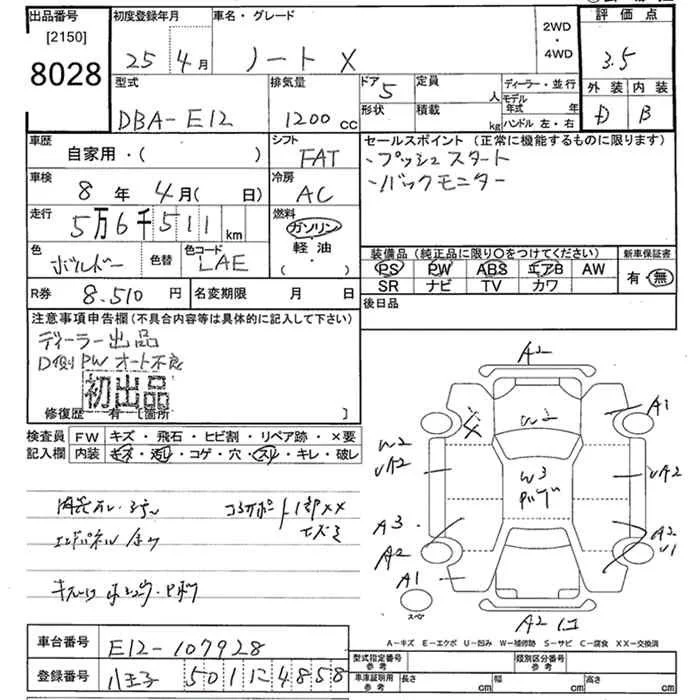 出品番号
[2150]
8028
初度登録年月
25年4月
車名・グレード
ノート X
2WD
・
4WD
評価点
3.5
外装 内装
D B
型式
DBA-E12
排気量
1200cc
ドア 5
定員 人
形状
積載 kg
ディーラー・並行
モデル年式 年
ハンドル 左・右
車歴
自家用・( )
シフト
FAT
車検
8年 4月( 日)
冷房
AC
走行
5万6千511km
燃料
ガソリン
軽油
( ・ )
色
ボルドー
色替
色コード
LAE
セールスポイント (正常に機能するものに限ります)
・プッシュスタート
・バックモニター
装備品 (純正品に限り○をつけてください)
PS PW ABS エアB AW
SR ナビ TV カワ
新車保証書
有・無
R券 8.510円
名変期限 月 日
後日品
注意事項申告欄(不具合内容等は具体的に記入して下さい)
ディーラー出品
D側PWオート不良
初出品
修復歴 有 [箇所 ]
検査員記入欄
FW キズ・飛石・ヒビ割・リペア跡・×要
内装 キズ・汚レ・コゲ・穴・スレ・キレ・破レ
A2
A1
W2
W2
UA2
W3
UA2
A3
A2
A2
U1
A1
A2
スペア
A-キズ E-エクボ U-凹み W-補修跡 S-サビ C-腐食 XX-交換済
車台番号
E12-107928
登録番号
八王子 501 に 4858
型式指定番号
参考
類別区分番号
参考
車庫証明用
参考
長さ cm
幅 cm
高さ cm